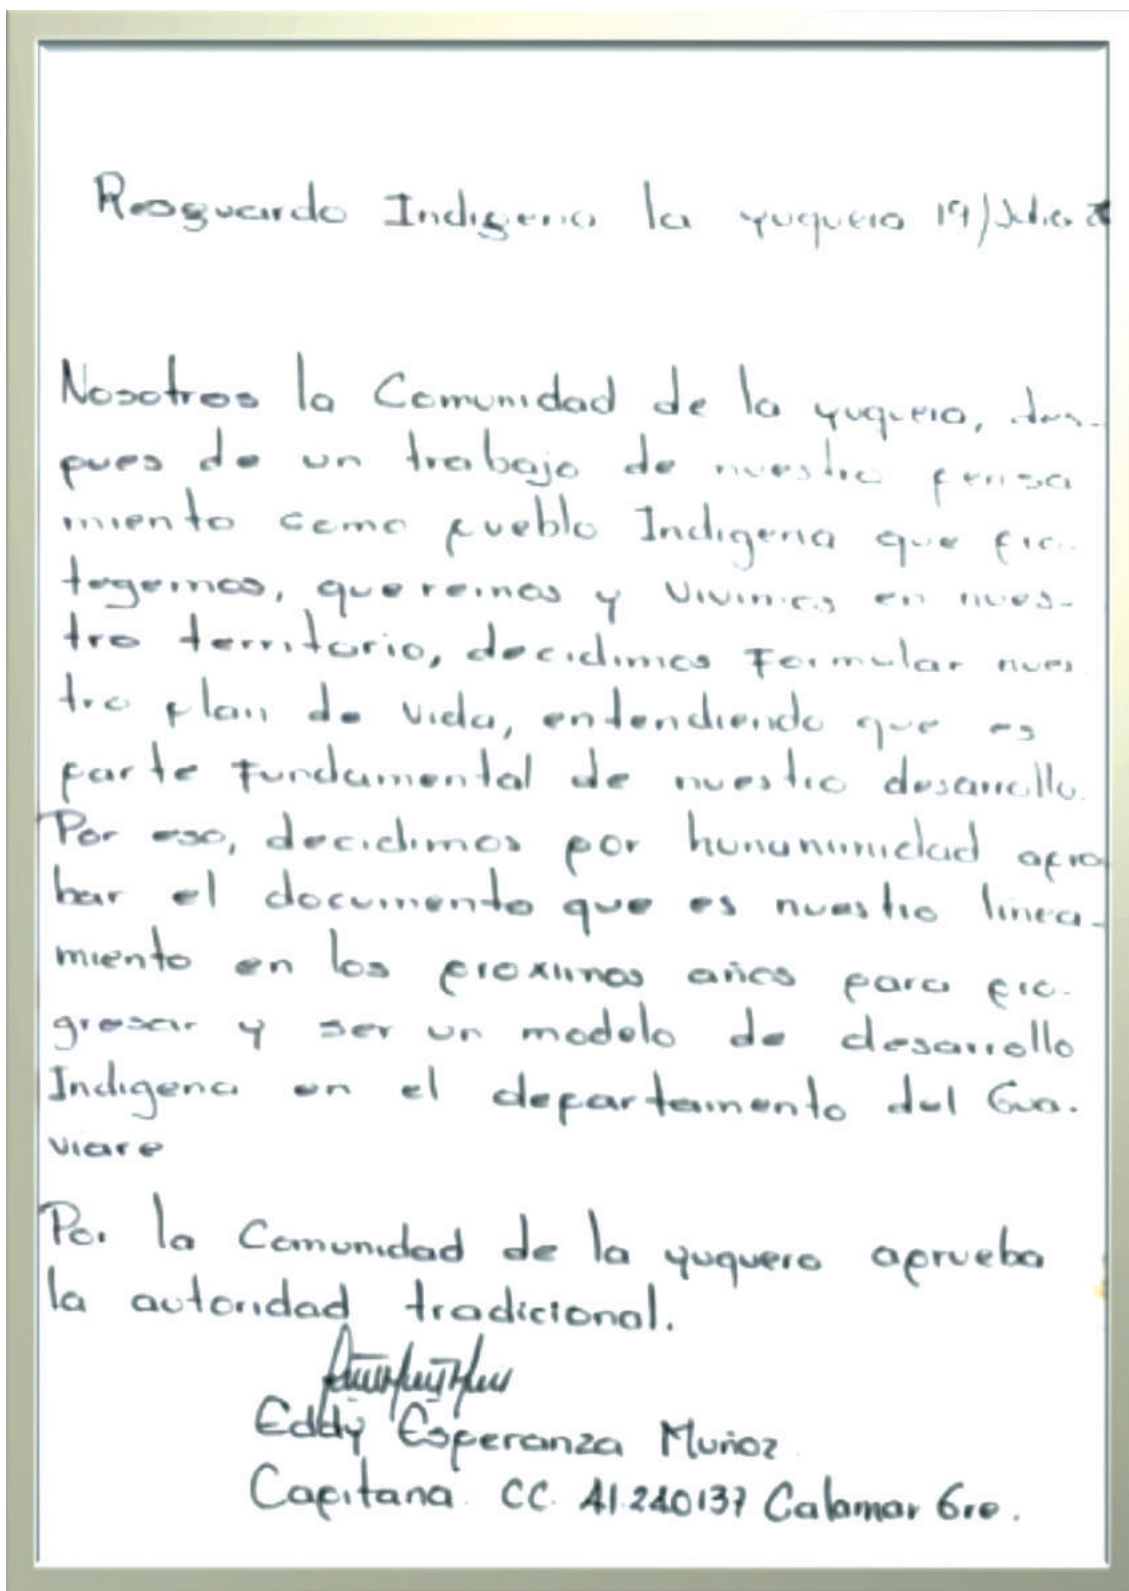 Resguardo Indigena la yuquera 19/Julio
Nosotros la Comunidad de la yuquera, des-
pues de un trabajo de nuestro pensa
miento como pueblo Indigena que pro-
tegemos, queremos y vivimos en nues-
tro territorio, decidimos Formular nues
tro plan de vida, entendiendo que es
parte Fundamental de nuestro desarrollo.
Por eso, decidimos por hununimidad apro
bar el documento que es nuestro linea-
miento en los proximos años para pro-
gresar y ser un modelo de desarrollo
Indigena en el departamento del Gua-
viare
Por la Comunidad de la yuquera aprueba
la autoridad tradicional.
Eddy Esperanza Muñoz
Capitana CC 41.240137 Calamar Gre.